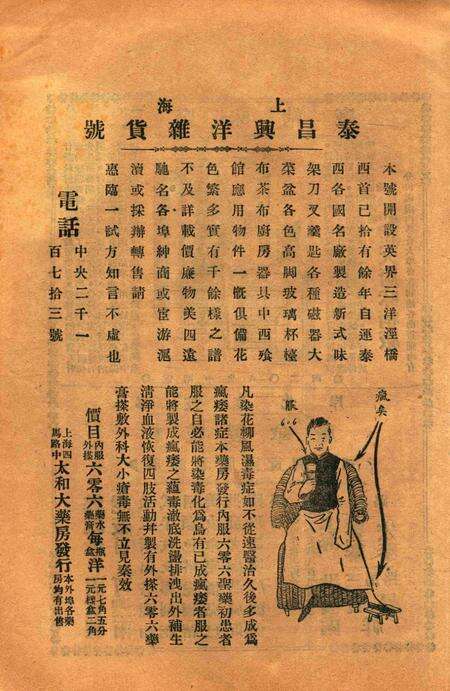 上海
泰昌興洋雜貨號
本號開設英界三洋涇橋
西首已拾有餘年自運泰
西各國名廠製造新式味
架刀叉羹匙各種磁器大
菜盆各色高脚玻璃杯檯
布茶布廚房器具中西飱
館應用物件一概俱備花
色繁多實有千餘樣之譜
不及詳載價廉物美四遠
馳名各埠紳商或宦游滬
瀆或採辦轉售請
惠臨一試方知言不虛也
電話
中央二千一
百七拾三號
瘋矣
服
606
凡染花柳風濕毒症如不從速醫治久後多成為
瘋痿諸症本藥房發行內服六零六聖藥初患者
服之自必能將染毒化為烏有已成瘋痿者服之
能將製成瘋痿之蘊毒澈底洗盪排洩出外補生
清淨血液恢復四肢活動幷製有外搽六零六藥
膏搽敷外科大小瘡毒無不立見奏效
價目
內服
外搽
六零六
藥水
藥膏
每
瓶
盒
洋
一元七角五分
一元
二角
上海四
馬路中
太和大藥房發行
本外埠各藥
房均有出售